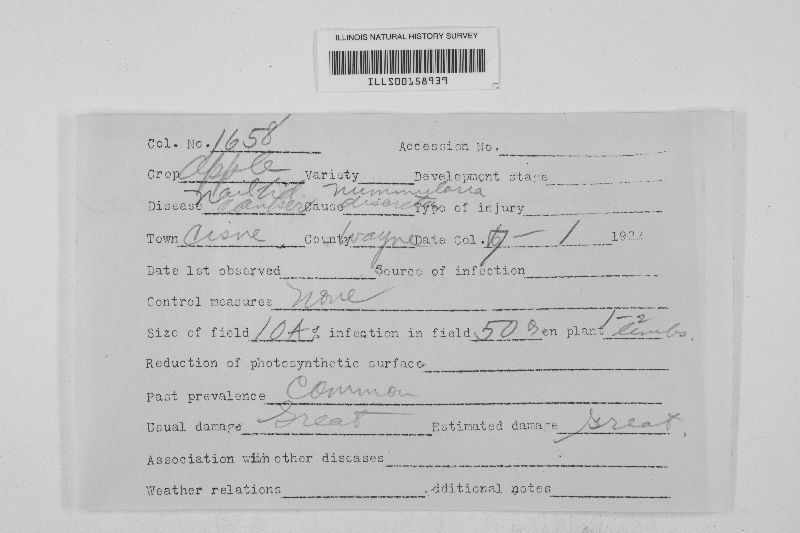 ILLINOIS NATURAL HISTORY SURVEY
ILLS00158939
Col. No. 1658 Accession No.
Crop Apple Variety Development stage
Disease Nailhead canker Cause Nummularia discreta Type of injury
Town Cisne County Wayne Date Col. 7-1 1922
Date 1st observed Source of infection
Control measures None
Size of field 10A % infection in field 50 % on plant 1-2 limbs.
Reduction of photosynthetic surface
Past prevalence Common
Usual damage Great Estimated damage Great.
Association with other diseases
Weather relations Additional notes